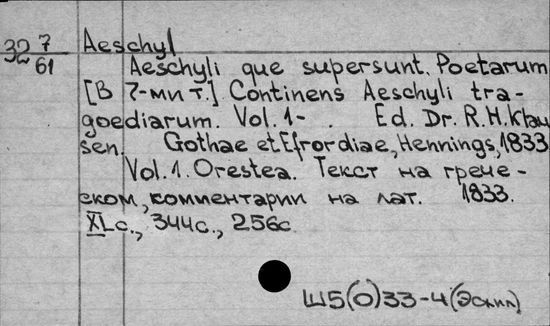 32 7/61
Aeschyl
Aeschyli que supersunt. Poetarum
[В 7-ми т.] Continens Aeschyli tra-
goediarum. Vol. 1- . Ed. Dr. R.H. Klau
sen. Gothae et Efrordiae, Hennings, 1833
Vol. 1. Orestea. Текст на грече-
ском, комментарии на лат. 1833.
XL с., 344 с., 256 с
Ш5(0)33-4(Эсхил)